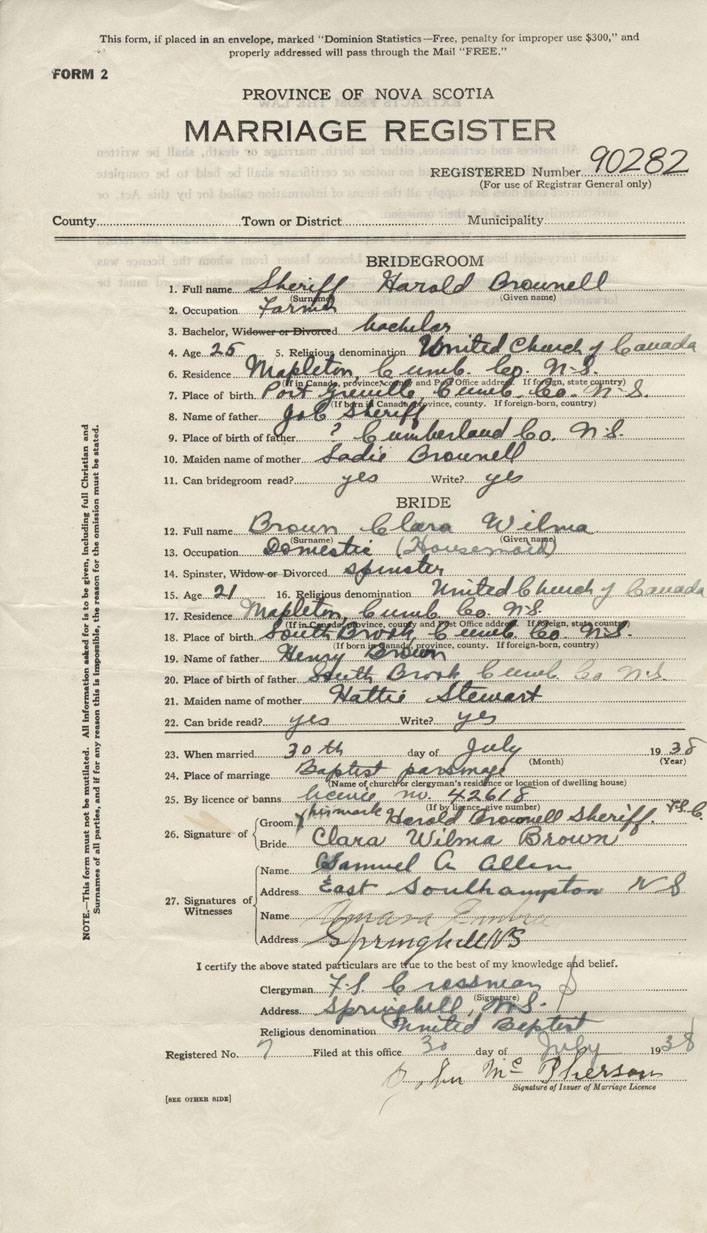 This form, if placed in an envelope, marked "Dominion Statistics—Free, penalty for improper use $300," and
properly addressed will pass through the Mail "FREE."
FORM 2
PROVINCE OF NOVA SCOTIA
MARRIAGE REGISTER
REGISTERED Number 90282
(For use of Registrar General only)
County Town or District Municipality
BRIDEGROOM
1. Full name Sheriff Harold Brownell
(Surname) (Given name)
2. Occupation Farmer
3. Bachelor, Widower or Divorced bachelor
4. Age 25 5. Religious denomination United Church of Canada
6. Residence Mapleton, Cumb. Co. N.S.
(If in Canada, province, county and Post Office address. If foreign, state country)
7. Place of birth Port Greville, Cumb. Co. N.S.
(If born in Canada, province, county. If foreign-born, country)
8. Name of father Job Sheriff
9. Place of birth of father ? Cumberland Co. N.S.
10. Maiden name of mother Sadie Brownell
11. Can bridegroom read? yes Write? yes
BRIDE
12. Full name Brown Clara Wilma
(Surname) (Given name)
13. Occupation Domestic (Housemaid)
14. Spinster, Widow or Divorced spinster
15. Age 21 16. Religious denomination United Church of Canada
17. Residence Mapleton, Cumb. Co. N.S.
(If in Canada, province, county and Post Office address. If foreign, state country)
18. Place of birth South Brook, Cumb. Co. N.S.
(If born in Canada, province, county. If foreign-born, country)
19. Name of father Henry Brown
20. Place of birth of father South Brook Cumb Co N.S.
21. Maiden name of mother Hattie Stewart
22. Can bride read? yes Write? yes
23. When married 30th day of July 1938
(Month) (Year)
24. Place of marriage Baptist parsonage
(Name of church or clergyman's residence or location of dwelling house)
25. By licence or banns licence no. 42618
(If by licence, give number)
26. Signature of
Groom his mark Harold Brownell Sheriff
Bride Clara Wilma Brown
27. Signatures of Witnesses
Name Samuel A Allen
Address East Southampton N S
Name
Address Springhill NS
I certify the above stated particulars are true to the best of my knowledge and belief.
Clergyman F.S. Crossman
(Signature)
Address Springhill, N.S.
Religious denomination United Baptist
Registered No. 7 Filed at this office 30 day of July 1938
John McPherson
Signature of Issuer of Marriage Licence
[SEE OTHER SIDE]
NOTE.—This form must not be mutilated. All information asked for is to be given, including full Christian and
Surnames of all parties, and if for any reason this is impossible, the reason for the omission must be stated.